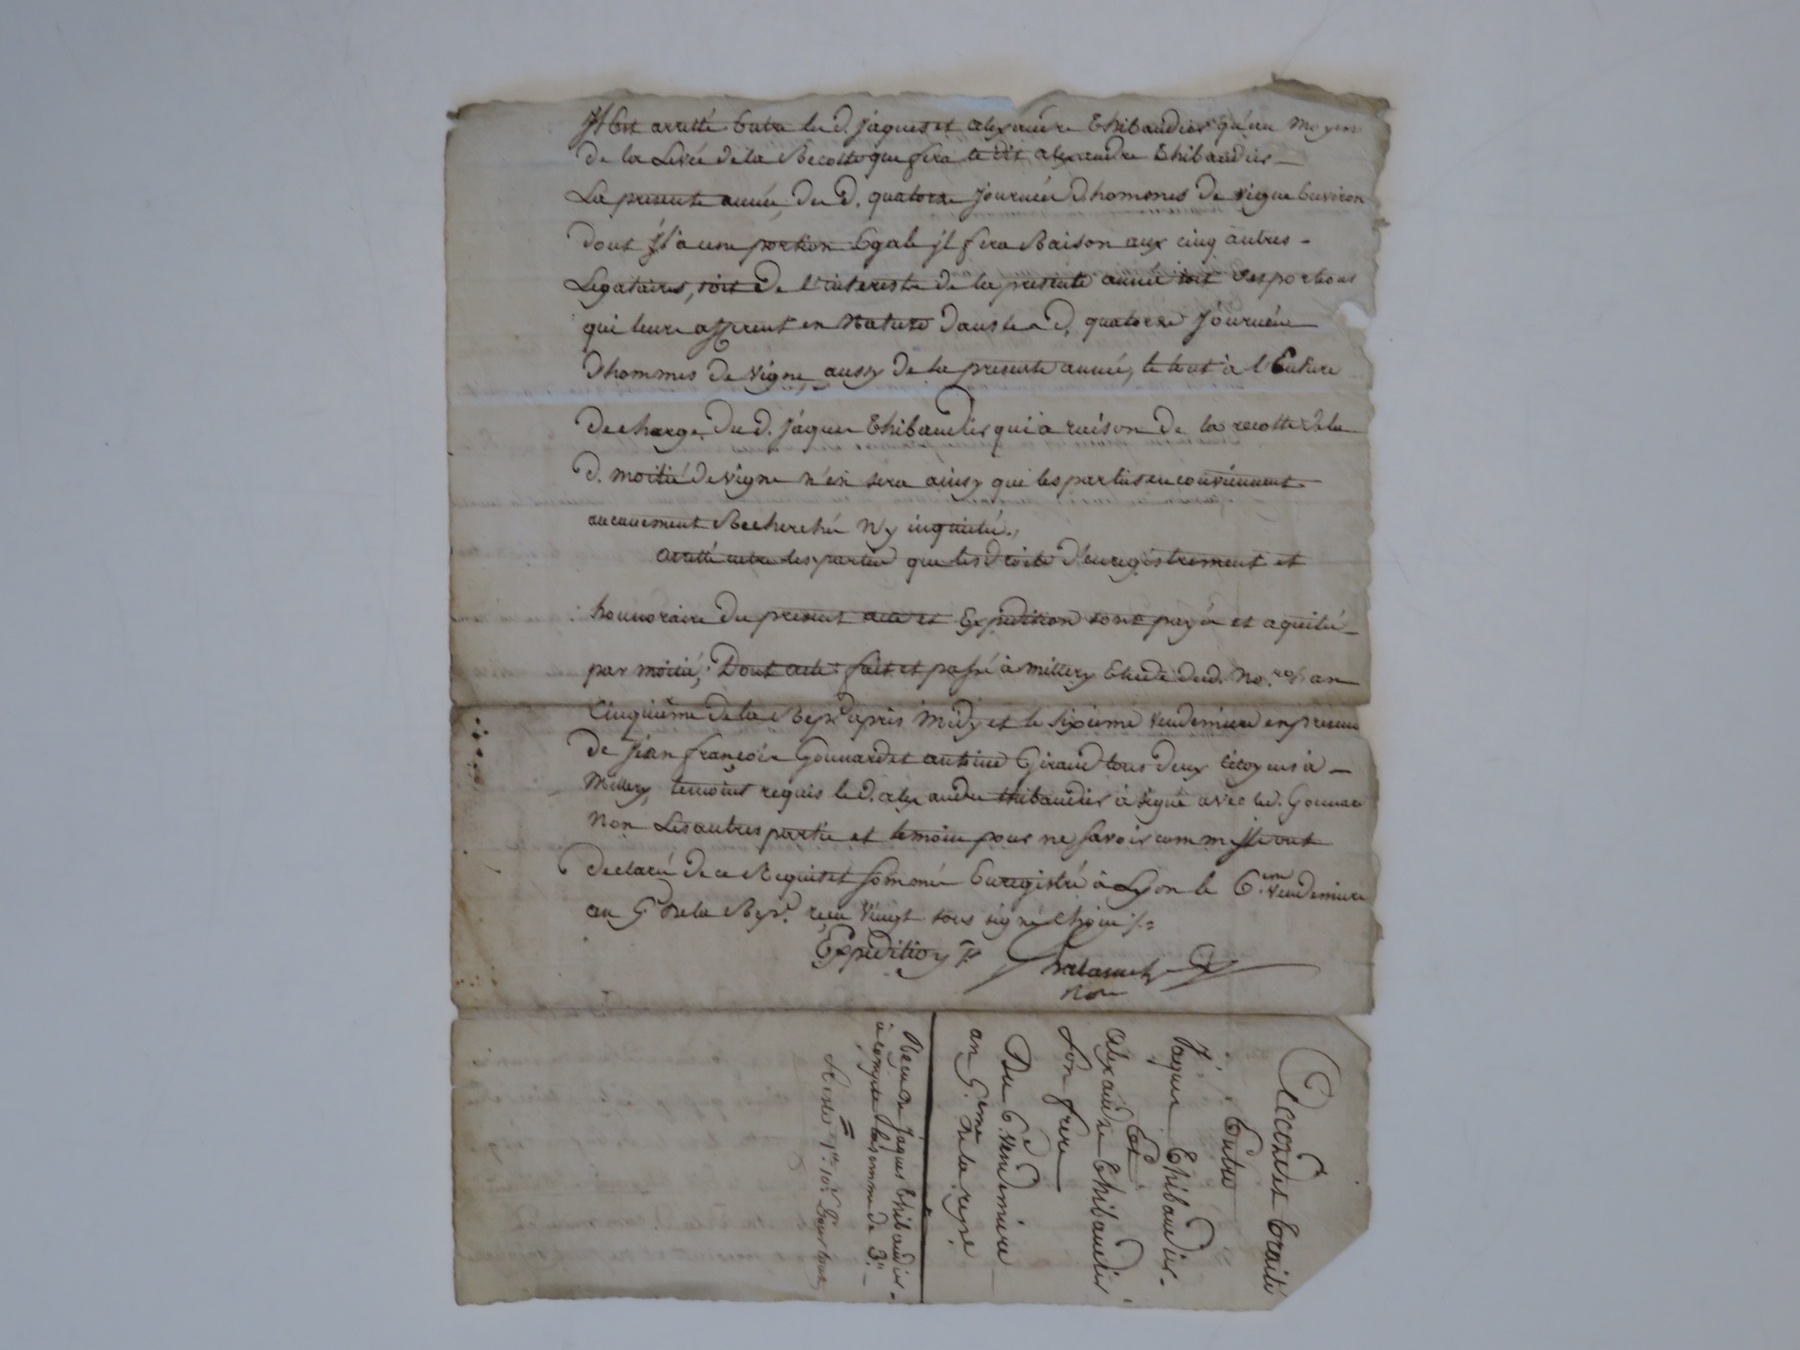 Il Est arretté Entre les d. jaques et alexandre Thibaudier qu'au moyen
de la Levée de la Recolte que fera le dit alexandre Thibaudier
La presente année des d. quatorze journées d'hommes de vigne Environ
dont Il a une portion Egale il fera Raison aux cinq autres
Legataires, soit de l'interest de la presente année soit des portions
qui leurs afferent en Nature dans les d. quatorze journées
d'hommes de vigne, aussy de la presente année, le tout à l'Entiere
decharge du d. jaques Thibaudier qui à raison de la recolte de la
d. moitié de vigne n'en sera ainsy que les parties en conviennent
aucunement Recherché Ny inquieté.
arretté entre les parties que les droits d'enregistrement et
honnoraire du present acte et Expedition sont payés et aquités
par moitié; Dont acte: fait et passé à millery Etude dud. No.re l'an
Cinquième de la Rep.e après Midy et le sixieme vendemiere en presence
de jean françois Gonnard et antoine Giraud tous deux citoyens à
Millery, temoins requis le d. alexandre thibaudier à signé avec led. Gonnard
Non Les autres partie et temoin pour ne savoir comme Ils ont
declaré de ce Requis et sommés Enregistré à Lyon le 6.eme vendemiere
an 5 de la Rep.e reçu vingt sous signé
Expedition
No.re
Accord et Traité
Entre
Jaques Thibaudier
Et
Alexandre Thibaudier
son frere
Du 6.e Vendemiere
an 5.eme de la repe
Reçu de jaques Thibaudier
à compte la somme de 3.#
Reste